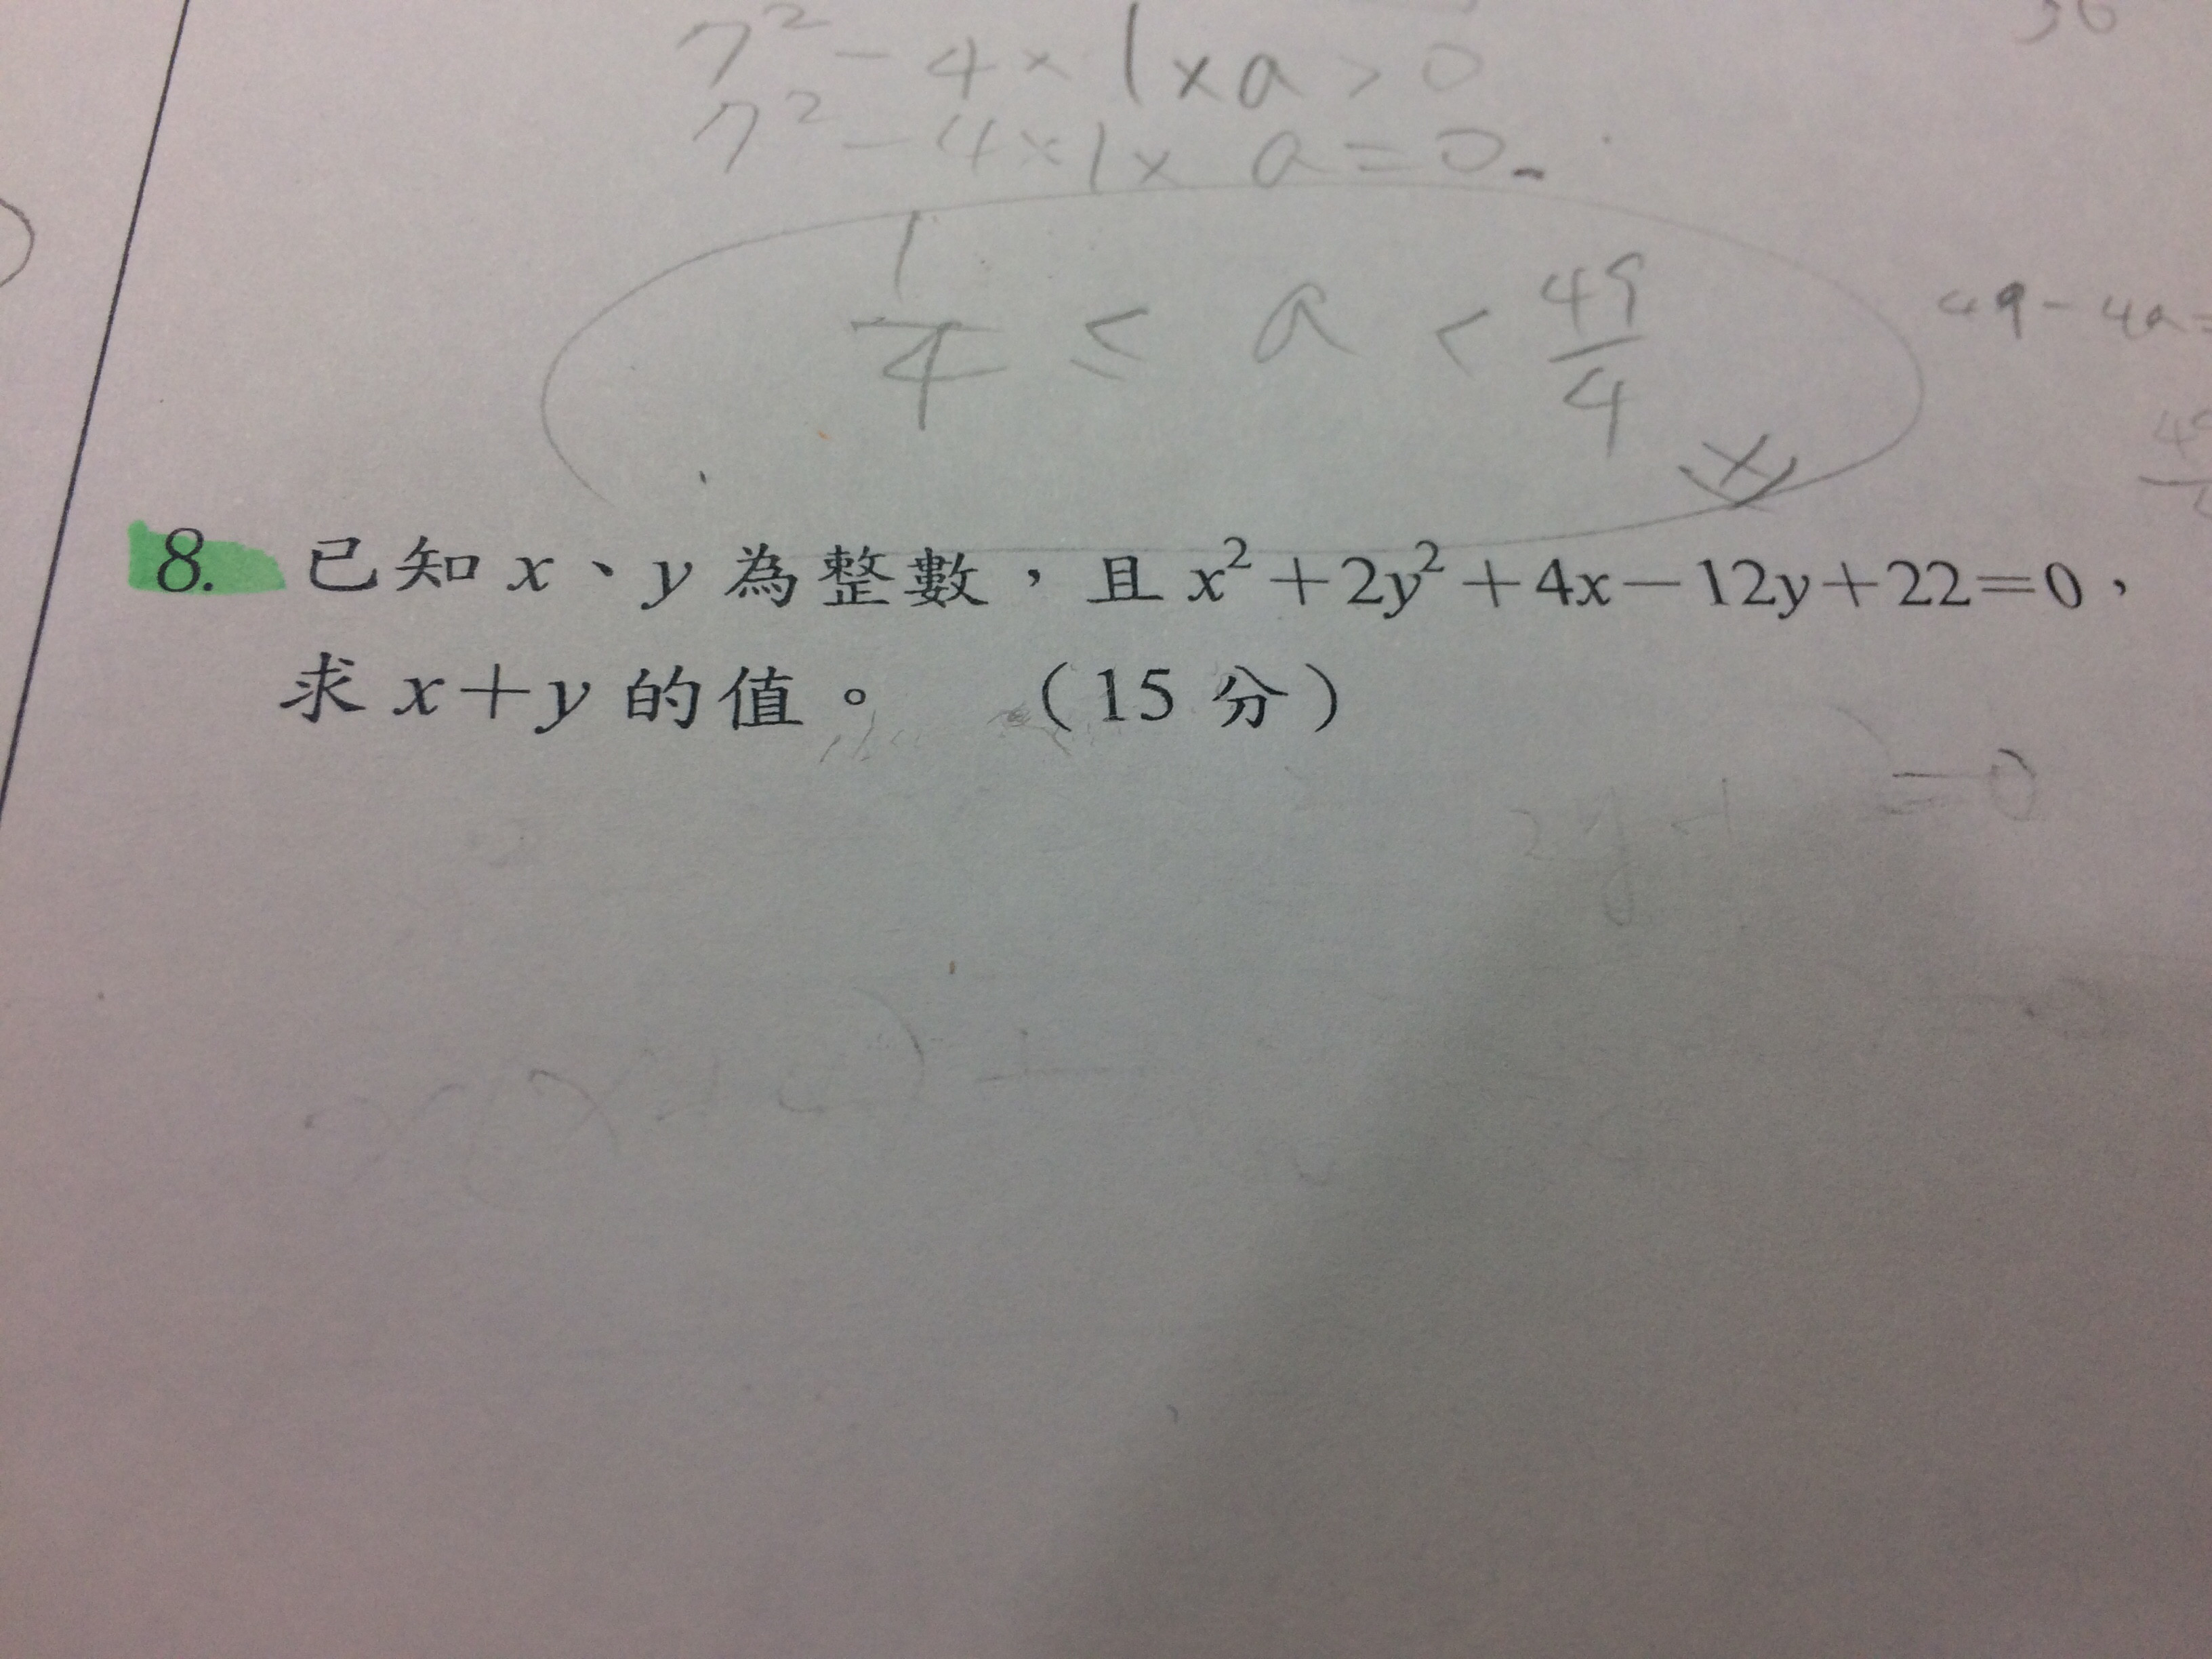 7² - 4 × 1 × a > 0
7² - 4 × 1 × a = 0
1/4 ≤ a < 49/4
49 - 4a =
8. 已知 x、y 為整數,且 x²+2y²+4x-12y+22=0,
求 x+y 的值。 (15 分)
= 0